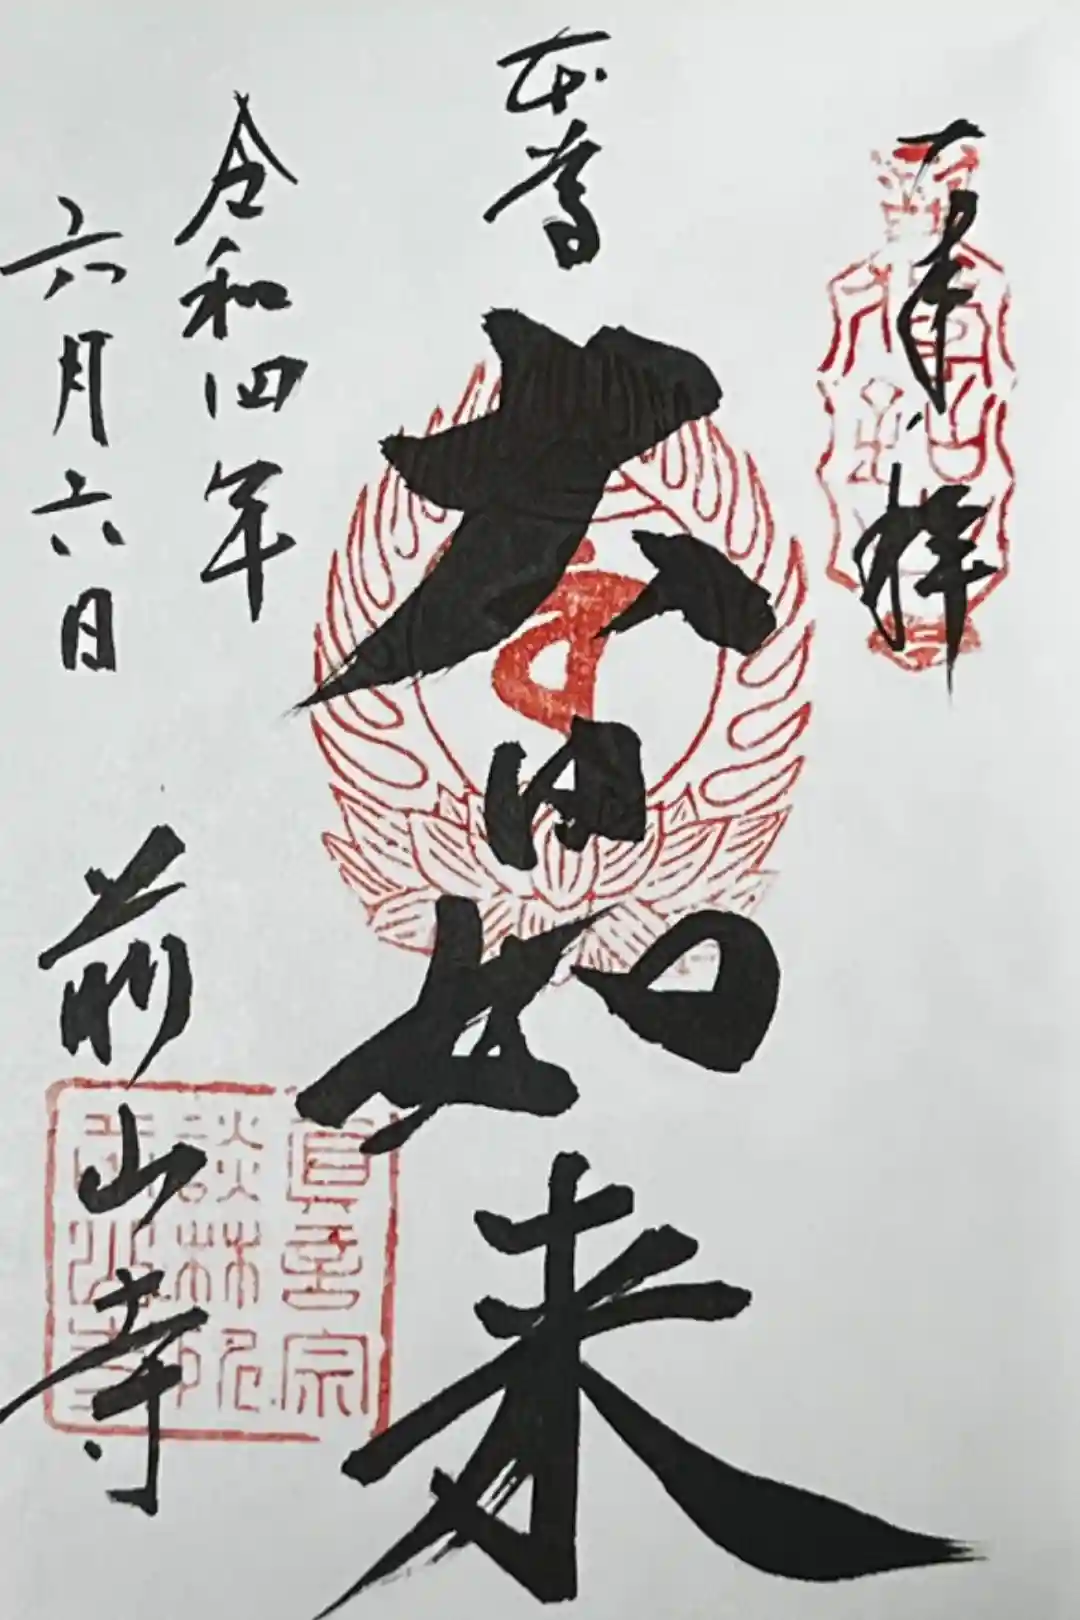 奉拝
本尊
大日如来
令和四年
六月六日
前山寺
真言宗
談林院
前山寺